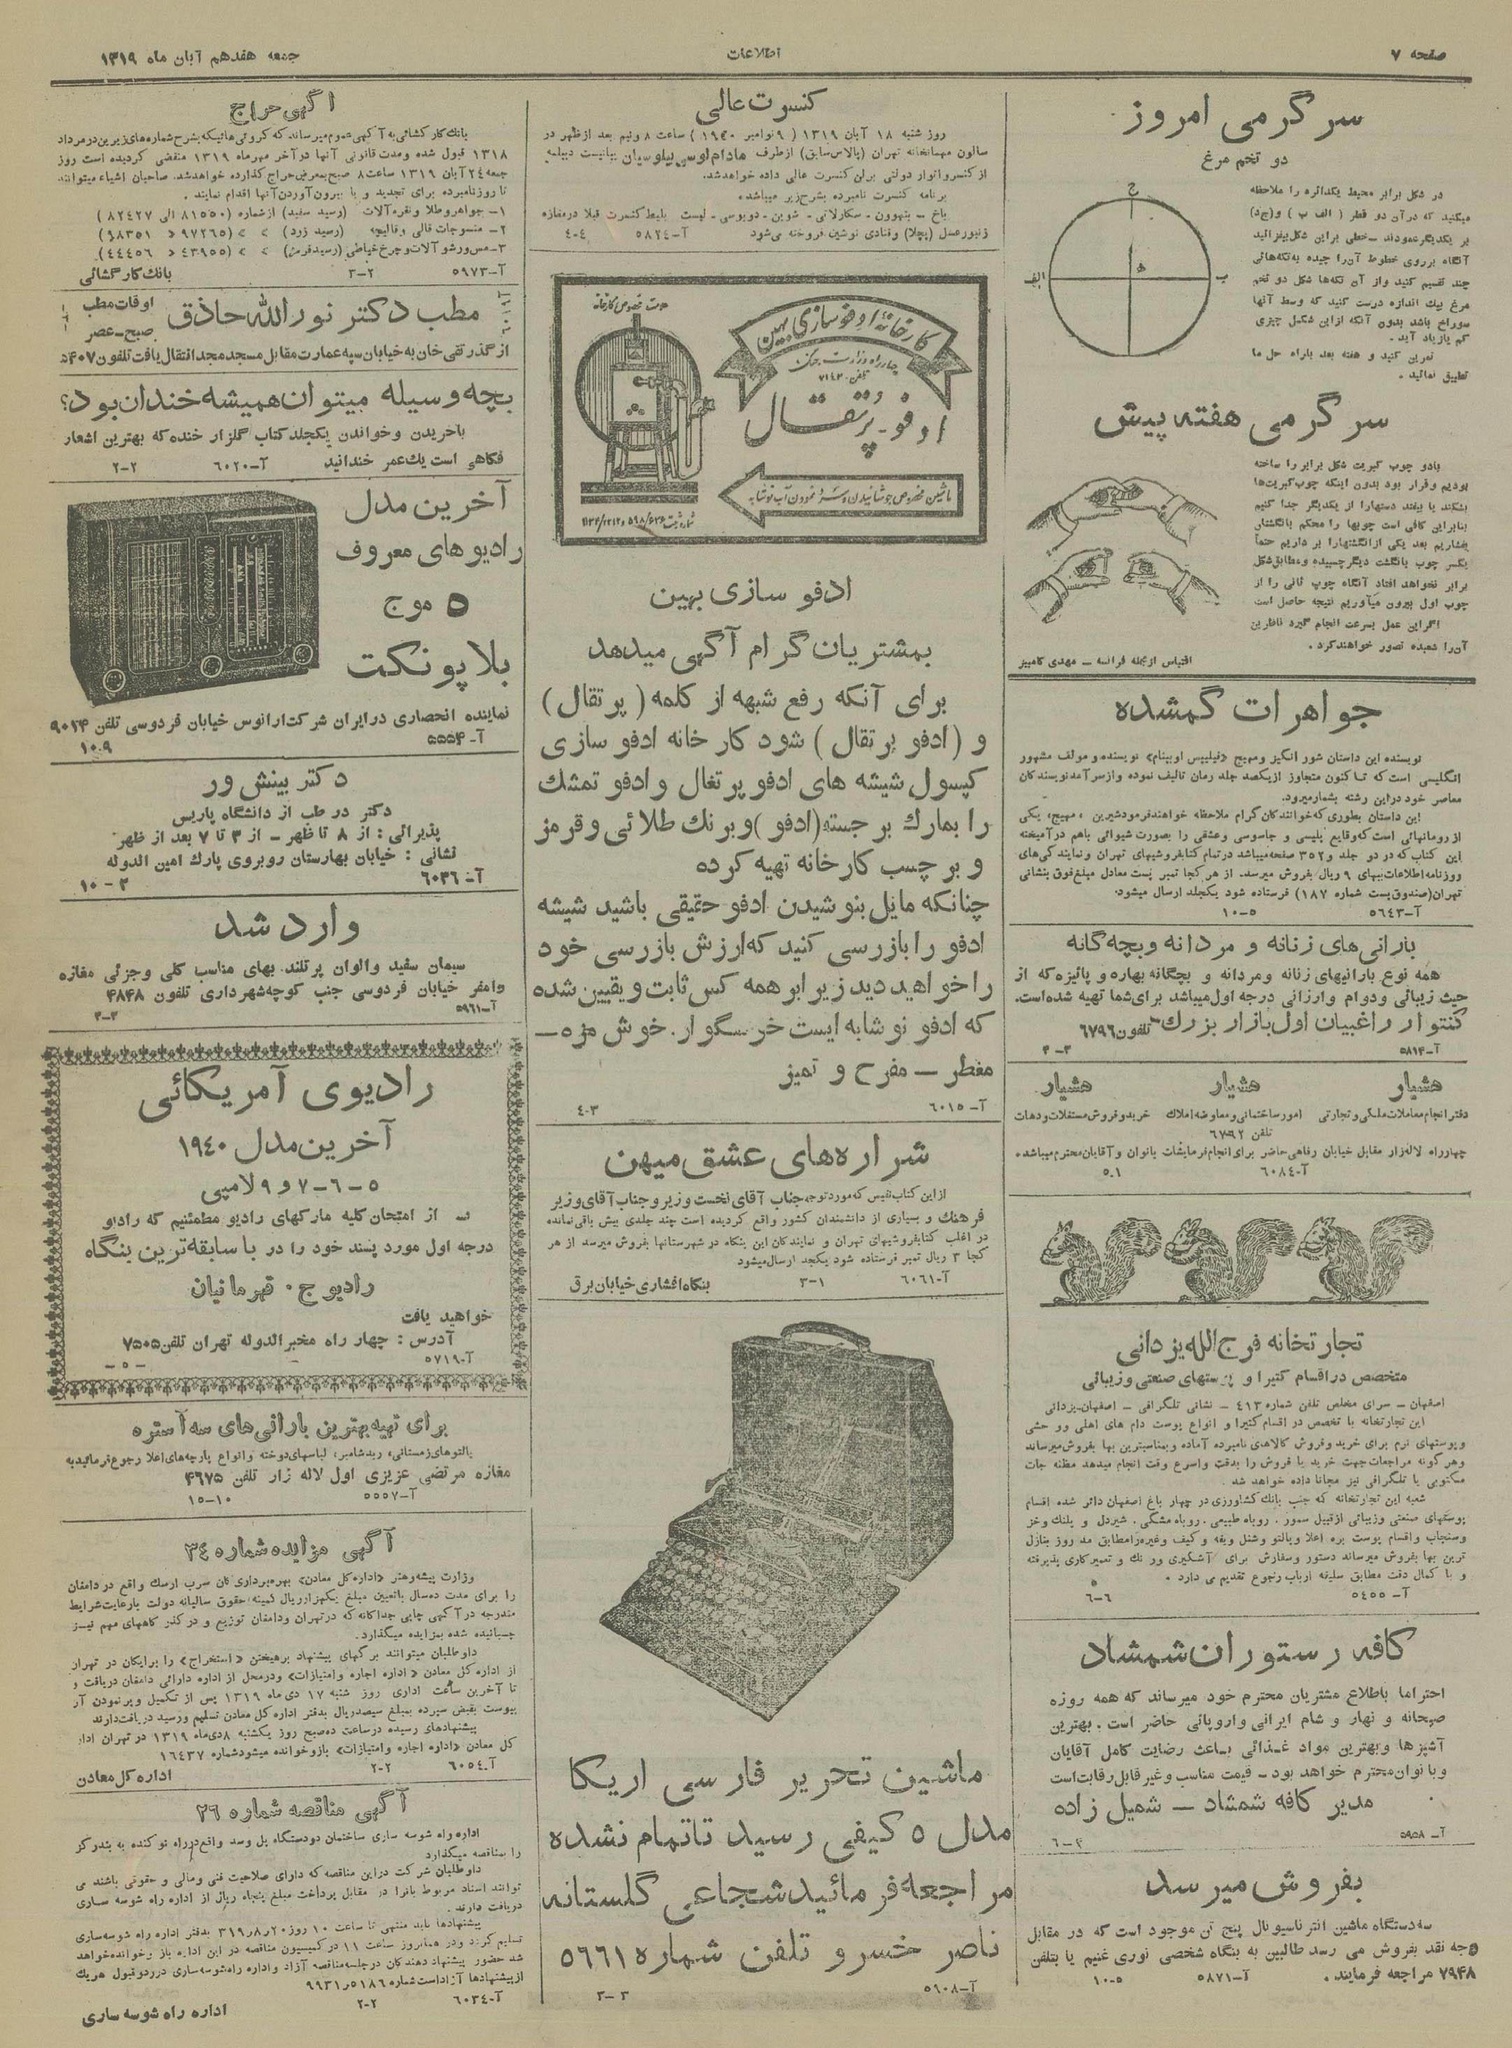 صفحه ۷
اطلاعات
جمعه هفدهم آبان ماه ۱۳۱۹
سرگرمی امروز
دو تخم مرغ
در شکل برابر محیط یکدائره را ملاحظه
میکنید که درآن دو قطر (الف ب) و(ج‌د)
بر یکدیگرعمودند - خطی براین شکل بیفزائید
آنگاه برروی خطوط آن‌را چیده به‌تکه‌هائی
چند تقسیم کنید واز آن تکه‌ها شکل دو تخم
مرغ بیك اندازه درست کنید که وسط آنها
سوراخ باشد بدون آنکه ازاین شکل چیزی
کم یازیاد آید.
تمرین کنید و هفته بعد باراه حل ما
تطبیق نمائید.
ج
الف
ب
سرگرمی هفته پیش
بادو چوب کبریت شکل برابر را ساخته
بودیم وقرار بود بدون اینکه چوب‌کبریت‌ها
بشکند یا بیفتد دستهارا از یکدیگر جدا کنیم
بنابراین کافی است چوبها را محکم باانگشتان
بفشاریم بعد یکی ازانگشتهارا بر داریم حتماً
یکسر چوب بانگشت دیگرچسبیده ومطابق‌شکل
برابر نخواهد افتاد آنگاه چوب ثانی را از
چوب اول بیرون میآوریم نتیجه حاصل است
اگراین عمل بسرعت انجام گیرد ناظرین
آن‌را شعبده تصور خواهندکرد.
اقتباس ازمجله فرانسه — مهدی کامبیز
جواهرات گمشده
نویسنده این داستان شور انگیز ومهیج «فیلیپس اوپنهام» نویسنده و مولف مشهور
انگلیسی است که تـا کنون متجاوز ازیکصد جلد رمان تالیف نموده وازسرآمدنویسندگان
معاصر خود دراین رشته بشمارمیرود.
این داستان بطوری‌که‌خوانندگان گرام ملاحظه خواهندفرمودشیرین، مهیج، یکی
ازرومانهائی است‌که‌وقایع پلیسی و جاسوسی وعشقی را بصورت شیوائی باهم درآمیخته
این کتاب که در دو جلد و۳۵۲ صفحه‌میباشد درتمام کتابفروشیهای تهران ونمایندگی‌های
روزنامه‌اطلاعات‌ببهای ۹ ریال بفروش میرسد. از هرکجا تمبر پست معادل مبلغ‌فوق بنشانی
تهران(صندوق‌پست شماره ۱۸۷) فرستاده شود یکجلد ارسال میشود.
آ-۵۶۴۳ ۵-۱۰
بارانی‌های زنانه و مردانه وبچه‌گانه
همه نوع بارانیهای زنانه ومردانه و بچگانه بهاره و پائیزه که از
حیث زیبائی ودوام وارزانی درجه اول میباشد برای‌شما تهیه شده‌است.
کنتوار راغبیان اول بازار بزرك- تلفون ۶۷۹۶
آ-۵۸۱۴ ۳-۴
هشیار هشیار هشیار
دفترانجام‌معاملات‌ملکی‌وتجارتی امورساختمانی‌ومعاوضه‌املاك خریدوفروش‌مستغلات‌ودهات
تلفن ۶۷۹۲
چهارراه لاله‌زار مقابل خیابان رفاهی‌حاضر برای‌انجام‌فرمایشات بانوان وآقایان‌محترم‌میباشد.
آ-۶۰۸۴ ۱-۵
تجارتخانه فرج‌الله‌یزدانی
متخصص دراقسام کتیرا و پوستهای صنعتی وزیبائی
اصفهان - سرای مخلص تلفن شماره ۴۱۳ - نشانی تلگرافی - اصفهان-یزدانی
این تجارتخانه با تخصص در اقسام‌کتیرا و انواع پوست دام های اهلی وو حشی
وپوستهای نرم برای خرید وفروش کالاهای نامبرده آماده وبمناسبترین بها بفروش‌میرساند
وهرگونه مراجعات‌جهت خرید یا فروش را بدقت واسرع وقت انجام میدهد مظنه جات
مکتوبی یا تلگرافی نیز مجانا داده خواهد شد.
شعبه این تجارتخانه که جنب بانك‌کشاورزی‌در چهار باغ اصفهان دائر شده اقسام
پوستهای صنعتی وزیبائی ازقبیل سمور. روباه طبیعی. روباه‌مشکی. شیردل و پلنك‌وخز
وسنجاب واقسام پوست بره اعلا وپالتو وشنل ویقه و کیف وغیره‌رامطابق مد روز بنازل
ترین بها بفروش میرساند دستور وسفارش برای آشگیری ورنك و تعمیرکاری پذیرفته
و با کمال دقت مطابق سلیقه ارباب رجوع تقدیم می دارد.
آ-۵۴۵۵ ۶-۶
کافه رستوران‌شمشاد
احتراما باطلاع مشتریان محترم خود میرساند که همه روزه
صبحانه و نهار و شام ایرانی واروپائی حاضر است. بهترین
آشپزها وبهترین مواد غـذائی بـاعث رضایت کامل آقایان
وبانوان‌محترم خواهد بود - قیمت مناسب وغیرقابل‌رقابت‌است
مدیر کافه شمشاد — شمیل زاده
آ-۵۹۵۸ ۴-۶
بفروش میرسد
سه‌دستگاه ماشین انترناسیونال پنج تن موجود است که در مقابل
وجه نقد بفروش می رسد طالبین به بنگاه شخصی نوری غنیم یا بتلفن
۷۹۴۸ مراجعه فرمایند. آ-۵۸۷۱ ۵-۱۰
کنسرت عالی
روز شنبه ۱۸ آبان ۱۳۱۹ (۹ نوامبر ۱۹۴۰) ساعت ۸ ونیم بعد ازظهر در
سالون مهمانخانه تهران (پالاس‌سابق) ازطرف مادام‌لوسی‌پیلوسیان پیانیست دیپلمه
ازکنسرواتوار دولتی برلن کنسرت عالی داده خواهدشد.
برنامه کنسرت نامبرده بشرح‌زیر میباشد.
باخ - بتهوون - سکارلاتی - شوپن - دوبوسی - لیست بلیط‌کنسرت قبلا درمغازه
زنبورعسل (پچلا) وقنادی نوشین فروخته می‌شود آ-۵۸۲۴ ۴-۴
کارخانهٔ ادفوسازی بهین
چهارراه وزارت جنگ
تلفن ۷۱۴۳
ادفو-پُرتقال
ماشین مخصوص جوشانیدن و سرد نمودن آب نوشابه
ادفو سازی بهین
بمشتریان گرام آگهی میدهد
برای آنکه رفع شبهه از کلمه (پرتقال)
و (ادفو پرتقال) شود کارخانه ادفو سازی
کپسول شیشه های ادفو پرتغال وادفو تمشك
را بمارك برجسته(ادفو)وبرنك طلائی وقرمز
و برچسب کارخانه تهیه کرده
چنانکه مایل بنوشیدن ادفو حقیقی باشید شیشه
ادفو را بازرسی کنید که‌ارزش بازرسی خود
راخواهید دید زیرابر همه کس ثابت ویقیین شده
که ادفو نوشابه ایست خوشگوار. خوش مزه—
معطر — مفرح و تمیز
آ-۶۰۱۵ ۳-۴
شراره‌های عشق میهن
ازاین کتاب‌نفیس که‌موردتوجه‌جناب آقای نخست وزیروجناب آقای‌وزیر
فرهنك و بسیاری از دانشمندان کشور واقع گردیده است چند جلدی بیش باقی‌نمانده
در اغلب کتابفروشیهای تهران و نمایندگان این بنگاه در شهرستانها بفروش میرسد از هر
کجا ۳ ریال تمبر فرستاده شود یکجلد ارسال‌میشود
آ-۶۰۶۱ ۱-۳ بنگاه‌افشاری‌خیابان‌برق
ماشین تحریر فارسی اریکا
مدل ۵ کیفی رسید تاتمام نشده
مراجعه‌فرمائیدشجاعی گلستانه
ناصر خسرو تلفن شماره ۵۶۶۱
آ-۵۹۰۸ ۳-۳
آگهی حراج
بانك‌کارگشائی به آگهی‌عموم‌میرساند که گروئی‌هائیکه بشرح‌شماره‌های‌زیرین‌درمرداد
۱۳۱۸ قبول شده ومدت قانونی آنها درآخر مهرماه ۱۳۱۹ منقضی گردیده است روز
جمعه۲۴ آبان ۱۳۱۹ ساعت۸ صبح‌بمعرض‌حراج گذارده خواهدشد. صاحبان اشیاء میتوانند
تا روزنامبرده برای تجدید و یا بیرون‌آوردن‌آنها اقدام نمایند.
۱- جواهروطلا ونقره‌آلات (رسید سفید) ازشماره (۸۱۵۵۰ الی ۸۲۴۲۷)
۲- منسوجات قالی وقالیچه (رسید زرد) » » (۹۷۲۶۵ « ۹۸۳۵۱)
۳-مس‌ورشوآلات‌وچرخ‌خیاطی(رسیدقرمز) » » (۴۳۹۵۵ « ۴۴۴۵۶)
آ-۵۹۷۳ ۲-۳ بانك‌کارگشائی
مطب دکتر نورالله حاذق
اوقات‌مطب
صبح-عصر
ازگذرتقی‌خان به‌خیابان‌سپه‌عمارت‌مقابل مسجدمجدانتقال‌یافت‌تلفون۵۴۰۷
بچه وسیله میتوان‌همیشه‌خندان‌بود؟
باخریدن وخواندن یکجلدکتاب گلزار خنده که بهترین اشعار
فکاهی است یك‌عمر خندانید آ-۶۰۲۰ ۲-۲
آخرین مدل
رادیوهای معروف
۵ موج
بلاپونکت
نماینده انحصاری درایران شرکت‌ارانوس خیابان فردوسی تلفن ۹۰۱۴
آ-۵۵۵۴ ۹-۱۰
دکتر بینش‌ور
دکتر در طب از دانشگاه پاریس
پذیرائی: از ۸ تا ظهر - از ۳ تا ۷ بعد از ظهر
نشانی: خیابان بهارستان روبروی پارك امین الدوله
آ-۶۰۳۶ ۲-۱۰
وارد شد
سیمان سفید والوان پرتلند. بهای مناسب کلی وجزئی مغازه
وامقر خیابان فردوسی جنب کوچه‌شهرداری تلفون ۴۸۴۸
آ-۵۹۶۱ ۳-۳
رادیوی آمریکائی
آخرین مدل ۱۹۴۰
۵-۶-۷ و ۹ لامپی
از امتحان کلیه مارکهای رادیو مطمئنیم که رادیو
درجه اول مورد پسند خود را در باسابقه‌ترین بنگاه
رادیو ج. قهرمانیان
خواهید یافت
آدرس: چهار راه مخبرالدوله تهران تلفن ۷۵۰۵
آ-۵۷۱۹ -۵-
برای تهیه بهترین بارانی‌های سه‌آستره
پالتوهای‌زمستانی، ربدشامبر، لباسهای‌دوخته وانواع پارچه‌های‌اعلا رجوع‌فرمائیدبه
مغازه مرتضی عزیزی اول لاله زار تلفن ۴۶۷۵
آ-۵۵۵۷ ۱۰-۱۵
آگهی مزایده شماره ۳۴
وزارت پیشه‌وهنر «اداره‌کل معادن» بهره‌برداری‌کان سرب ارسك واقع در دامغان
را برای مدت ده‌سال باتعیین مبلغ یکهزارریال کمینه‌حقوق سالیانه دولت بارعایت‌شرایط
مندرجه درآگهی چاپی جداگانه که درتهران ودامغان توزیع و درگذرگاههای مهم نیـز
چسبانیده شده بمزایده میگذارد.
داوطلبان میتوانند برگهای پیشنهاد برهیختن «استخراج» را برایگان در تهران
از اداره‌کل معادن «اداره اجاره وامتیازات» ودرمحل از اداره دارائی دامغان دریافت و
تا آخرین ساعت اداری روز شنبه ۱۷ دی‌ماه ۱۳۱۹ پس از تکمیل وپرنمودن آن
بپیوست بقبض سپرده بمبلغ سیصدریال بدفتر اداره کل معادن تسلیم ورسید دریافت‌دارند
پیشنهادهای رسیده درساعت ده‌صبح روز یکشنبه ۱۸دی‌ماه ۱۳۱۹ در تهران ادار
کل معادن «اداره اجاره وامتیازات» بازوخوانده میشودشماره ۱۶۴۳۷
آ-۶۰۵۴ ۲-۲ اداره‌کل‌معادن
آگهی مناقصه شماره ۲۶
اداره راه شوسه سازی ساختمان دودستگاه پل وسد واقع‌درراه نوکنده به بندرگز
را بمناقصه میگذارد
داوطلبان شرکت دراین مناقصه که دارای صلاحیت فنی ومالی و حقوقی باشند می
توانند اسناد مربوط بآنرا در مقابل پرداخت مبلغ پنجاه ریال از اداره راه شوسه سازی
دریافت دارند.
پیشنهادها باید منتهی تا ساعت ۱۰ روز۲۰ر۸ر۳۱۹ بدفتر اداره راه شوسه‌سازی
تسلیم گردد ودر همانروز ساعت ۱۱ درکمیسیون مناقصه در این اداره باز وخوانده‌خواهد
شد حضور پیشنهاد دهندگان درجلسه‌مناقصه آزاد واداره راه‌شوسه‌سازی دررد‌وقبول هریك
ازپیشنهادها آزاداست‌شماره ۵۱۸۶ر۹۹۳۱
آ-۶۰۳۴ ۲-۲
اداره راه شوسه سازی